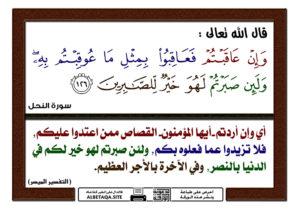 قال الله تعالى :
وَإِنْ عَاقَبْتُمْ فَعَاقِبُوا۟ بِمِثْلِ مَا عُوقِبْتُم بِهِۦ ۖ
وَلَئِن صَبَرْتُمْ لَهُوَ خَيْرٌ لِّلصَّـٰبِرِينَ ١٢٦
سورة النحل
أي وإن أردتم -أيها المؤمنون- القصاص ممن اعتدوا عليكم،
فلا تزيدوا عما فعلوه بكم، ولئن صبرتم لهو خير لكم في
الدنيا بالنصر، وفي الآخرة بالأجر العظيم.
(التفسير الميسر)
احرص على طباعة
ونشر هذه الورقة
ALBETAQA.SITE